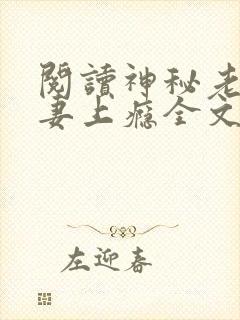 閱讀神秘老
妻上癮全文
左迎春